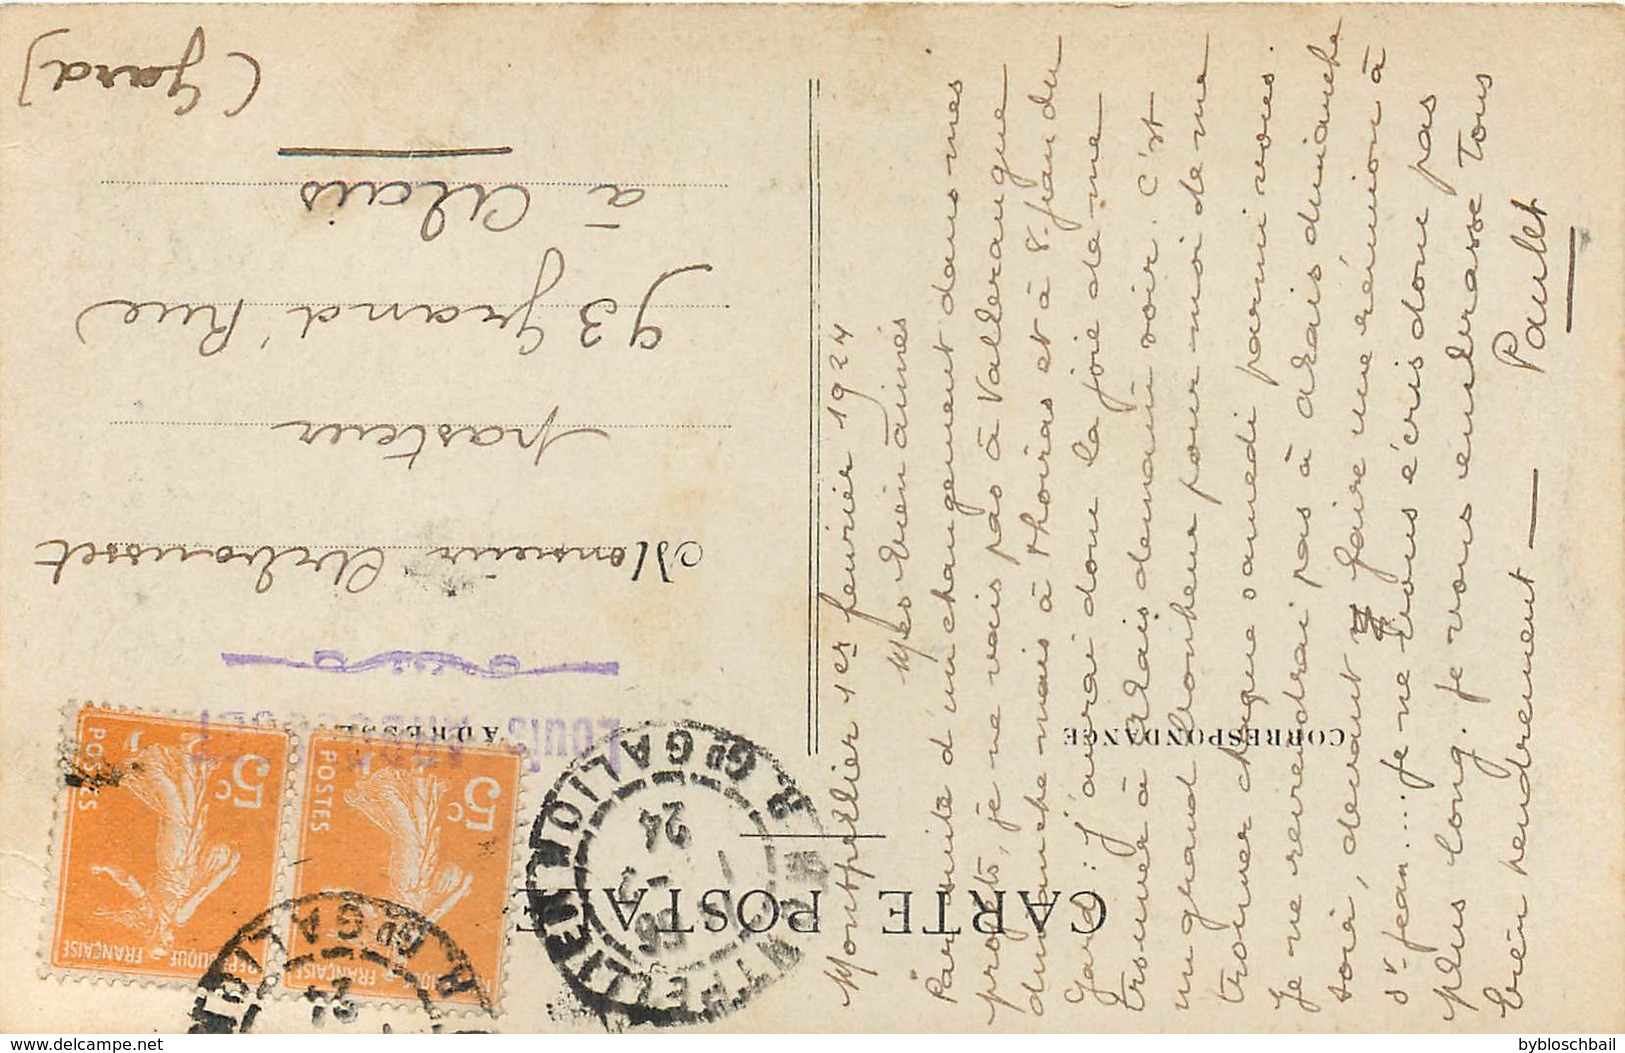 CARTE POSTALE
CORRESPONDANCE
ADRESSE
Montpellier 1er fevrier 1924
Mes bien aimés
Par suite d'un changement dans mes
projets, je ne vais pas à Valleraugue
dimanche mais à Thoiras et à St-Jean du
Gard : J'aurai donc la joie de me
trouver à Alais demain soir. C'est
un grand bonheur pour moi de me
trouver chaque samedi parmi vous.
Je ne reviendrai pas à Alais dimanche
soir, devant faire une réunion à
St-Jean... je ne vous écris donc pas
plus long. Je vous embrasse tous
bien tendrement — Paulet
Louis
Monsieur Arbousset
pasteur
93 Grand'Rue
à Alais
(Gard)
5c
POSTES
RÉPUBLIQUE FRANÇAISE
5c
POSTES
FRANÇAISE
MONTPELLIER Gd GALION
24
Gd GALI
24
delcampe.net
bybloschbail